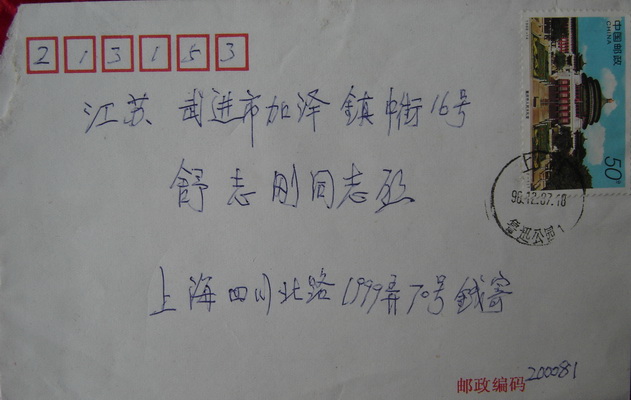 213153
江苏 武进市加泽镇中街16号
舒志刚同志启
上海四川北路1999弄70号钱寄
邮政编码 200081
中国邮政
CHINA
50
上
98.12.07.18
鲁迅公园1